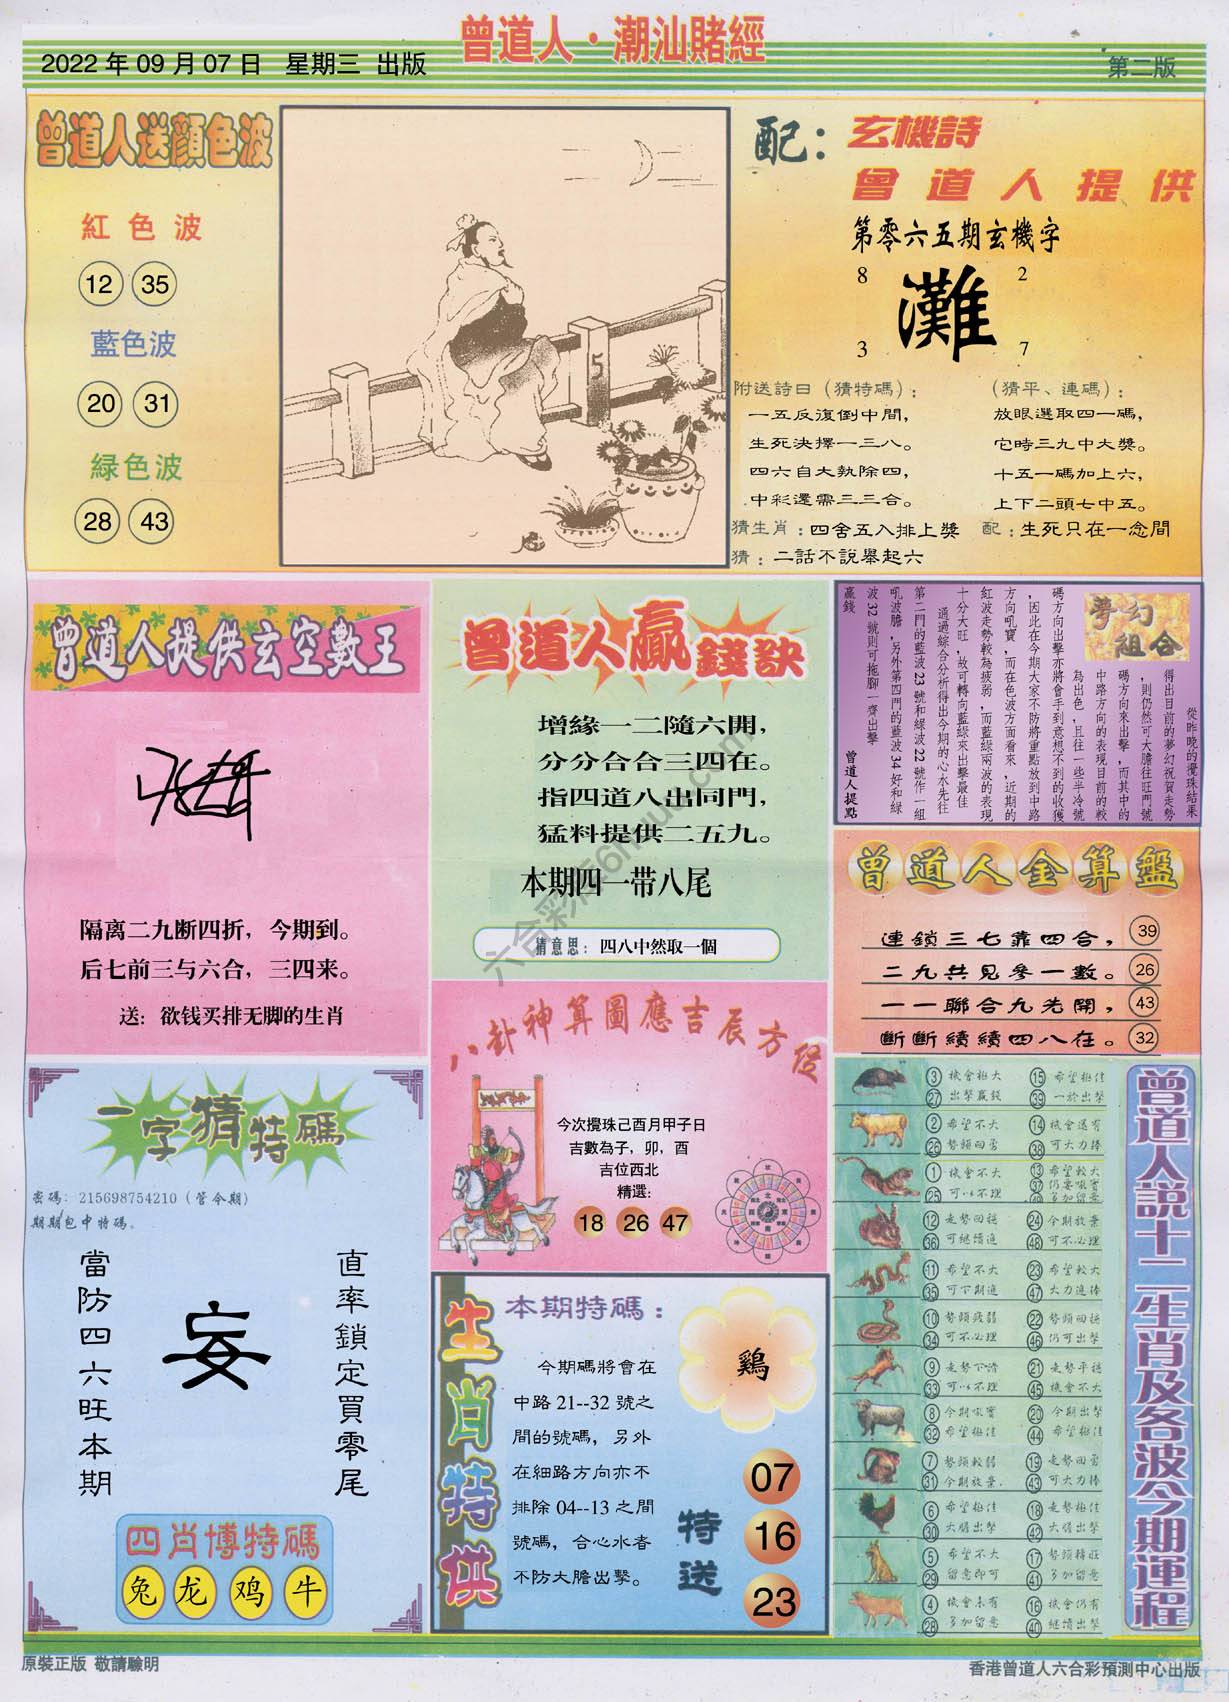 曾道人·潮汕賭經
2022 年 09 月 07 日 星期三 出版
第二版
曾道人送顏色波
紅色波
12 35
藍色波
20 31
緑色波
28 43
5
配：
玄機詩
曾道人提供
第零六五期玄機字
8 2
灘
3 7
附送詩曰（猜特碼）：
一五反復倒中間，
生死決擇一三八。
四六自大執除四，
中彩還需三三合。
（猜平、連碼）：
放眼選取四一碼，
它時三九中大獎。
十五一碼加上六，
上下二頭七中五。
猜生肖：四舍五入排上獎
配：生死只在一念間
猜：二話不說舉起六
曾道人提供玄空數王
隔离二九断四折，今期到。
后七前三与六合，三四来。
送：欲钱买排无脚的生肖
曾道人贏錢訣
增緣一二隨六開，
分分合合三四在。
指四道八出同門，
猛料提供二五九。
本期四一带八尾
猜意思：四八中然取一個
夢幻組合
從昨晚的攪珠結果
得出目前的夢幻祝賀走勢
，則仍然可大膽往旺門號
碼方向來出擊，而其中的
中路方向的表現目前的較
為出色，且往一些半冷號
碼方向出擊亦將會手到意想不到的收獲
，因此在今期大家不防將重點放到中路
方向吼寶，而在色波方面看來，近期的
紅波走勢較為疲弱，而藍綠兩波的表現
十分大旺，故可轉向藍綠來出擊最佳
通過綜合分析得出今期的心水先往
第二門的藍波 23 號和綠波 22 號作一組
吼波膽，另外第四門的藍波 34 好和綠
波 32 號則可拖腳一齊出擊
贏錢
曾道人提點
曾道人金算盤
連鎖三七靠四合， 39
二九共見參一數。 26
一一聯合九先開， 43
斷斷續續四八在。 32
八卦神算圖應吉辰方位
今次攪珠己酉月甲子日
吉數為子，卯，酉
吉位西北
精選：
18 26 47
一字猜特碼
密碼：215698754210（管令期）
期期包中特碼。
直率鎖定買零尾
妄
當防四六旺本期
四肖博特碼
兔 龙 鸡 牛
生肖特供
本期特碼：
鷄
今期碼將會在
中路 21--32 號之
間的號碼，另外
在細路方向亦不
排除 04--13 之間
號碼，合心水者
不防大膽出擊。
特送
07
16
23
曾道人説十二生肖及各波今期運程
3 機會極大 15 希望極佳
27 出擊贏錢 39 一於出擊
2 希望不大 14 機會還有
26 勢頭回勇 38 可大力捧
1 機會不大 13 希望較大
25 可以不理 37 仍要吼實
49 多加留意
12 走勢回穩 24 今期放棄
36 可繼續追 48 可不必理
11 希望不大 23 希望較大
35 可下期追 47 大力追捧
10 勢頭疲弱 22 勢頭回穩
34 可不必理 46 仍可出擊
9 走勢下滑 21 走勢平穩
33 可以不理 45 機會不大
8 今期吼實 20 今期出擊
32 希望極佳 44 希望極佳
7 勢頭較弱 19 走勢回勇
31 今期放棄. 43 可大力捧
6 希望極佳 18 走勢極佳
30 大膽出擊 42 大膽出擊
5 希望不大 17 勢頭精旺
29 留意即可 41 多加留意
4 機會未有 16 機會仍有
28 多加留意 40 繼續出擊
原裝正版 敬請驗明
香港曾道人六合彩預測中心出版